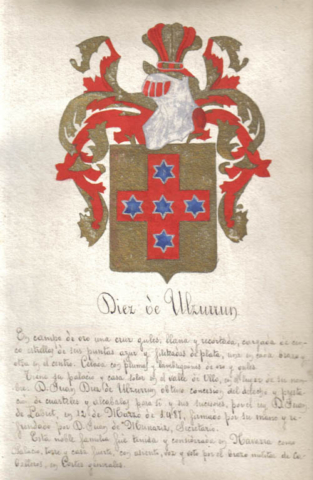 Diez de Ulzurrun
En campo de oro una cruz gules, llana y recortada, cargada de cinco
estrellas de seis puntas azur y fileteadas de plata, una en cada brazo y
otra en el centro. Celada con plumas y lambrequines de oro y gules.
Tiene su palacio y casa solar en el valle de Ollo, en el lugar de su nombre.
D. Juan Diez de Ulzurrun obtuvo concesion del
de cuarteles y alcabalas para si y sus sucesores, por el rey D. Juan
de Labrit, en 12 de Marzo de 1497, firmada por su mano y re-
frendada por D. Juan de Secretario.
Esta noble familia fue tenida y considerada en Navarra como
Palacio, torre y casa fuerte, con asiento, voz y voto por el brazo militar de
en Cortes generales.